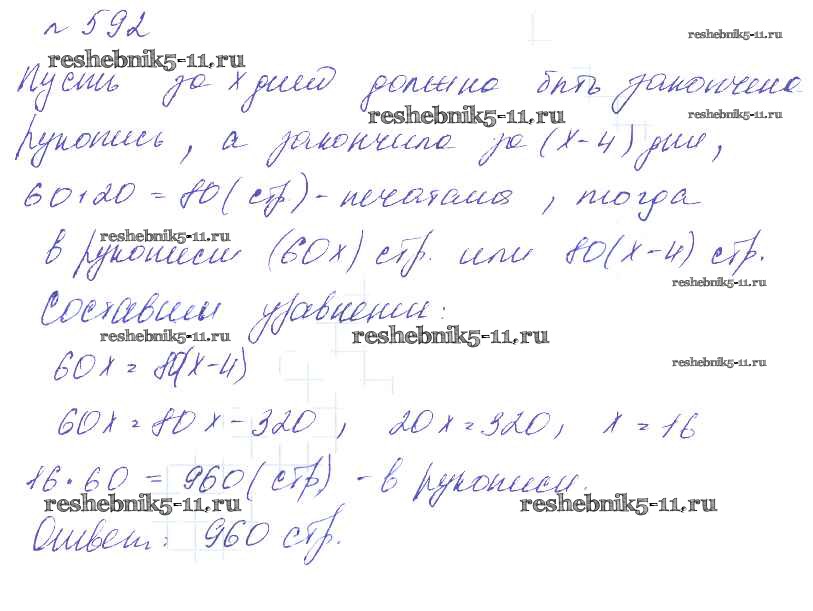 № 592
reshebnik5-11.ru
reshebnik5-11.ru
Пусть за x дней должна быть закончена
reshebnik5-11.ru
reshebnik5-11.ru
рукопись, а закончила за (x-4) дня,
60+20 = 80 (стр) - печатала, тогда
reshebnik5-11.ru
в рукописи (60x) стр. или 80(x-4) стр.
reshebnik5-11.ru
Составим уравнение:
reshebnik5-11.ru
reshebnik5-11.ru
60x = 80(x-4)
reshebnik5-11.ru
60x = 80x - 320, 20x = 320, x = 16
16·60 = 960 (стр) - в рукописи.
reshebnik5-11.ru
reshebnik5-11.ru
Ответ: 960 стр.